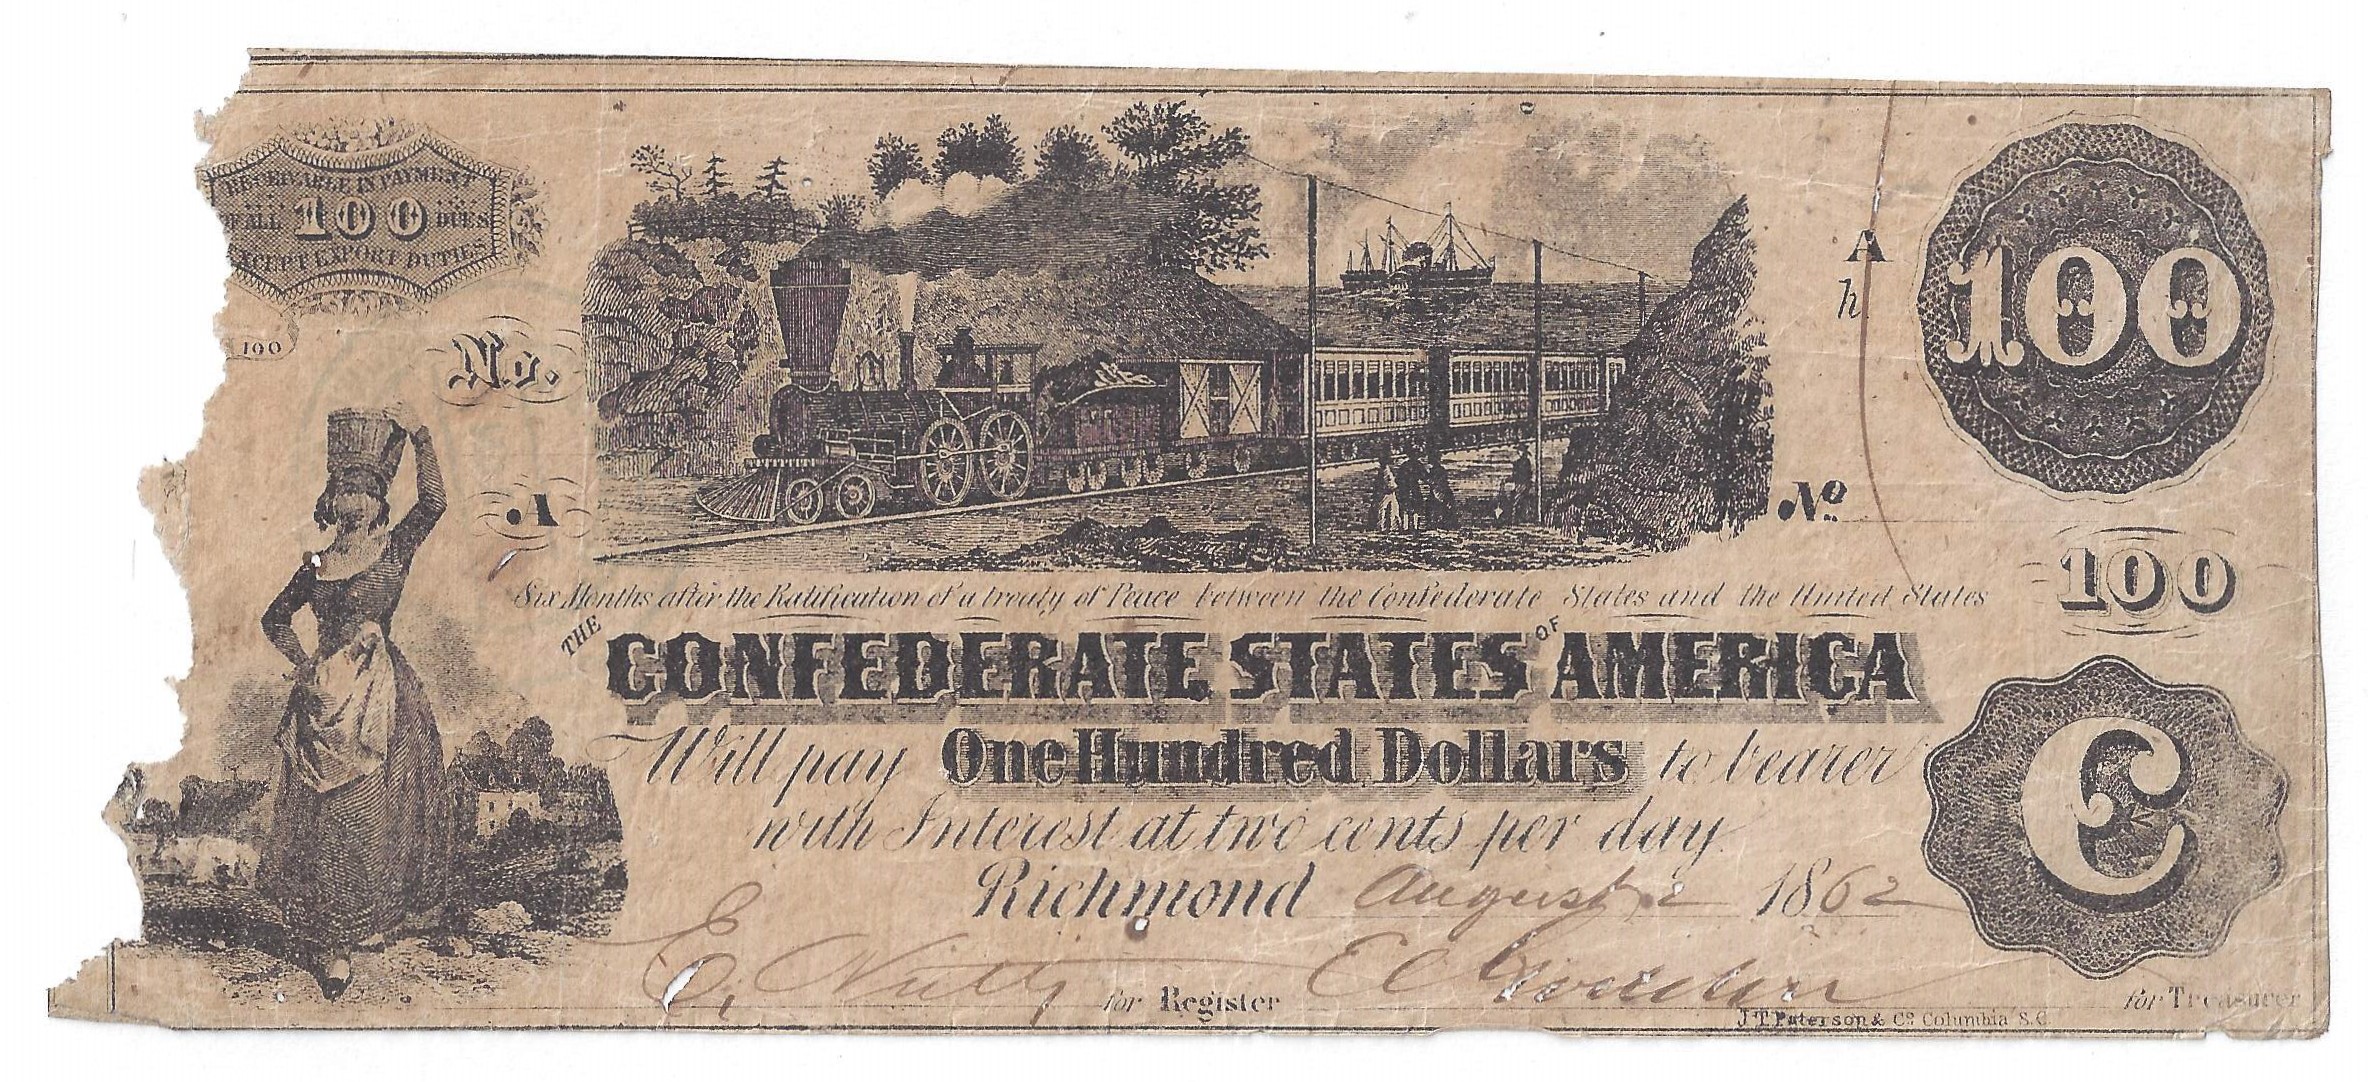 RECEIVABLE IN PAYMENT
OF ALL 100 DUES
EXCEPT EXPORT DUTIES
100
No.
A
A
h
100
No
100
Six Months after the Ratification of a treaty of Peace between the Confederate States and the United States
THE CONFEDERATE STATES OF AMERICA
Will pay One Hundred Dollars to bearer
with Interest at two cents per day
Richmond August 2 1862
C
E. for Register E C for Treasurer
J.T. Paterson & Co Columbia S.C